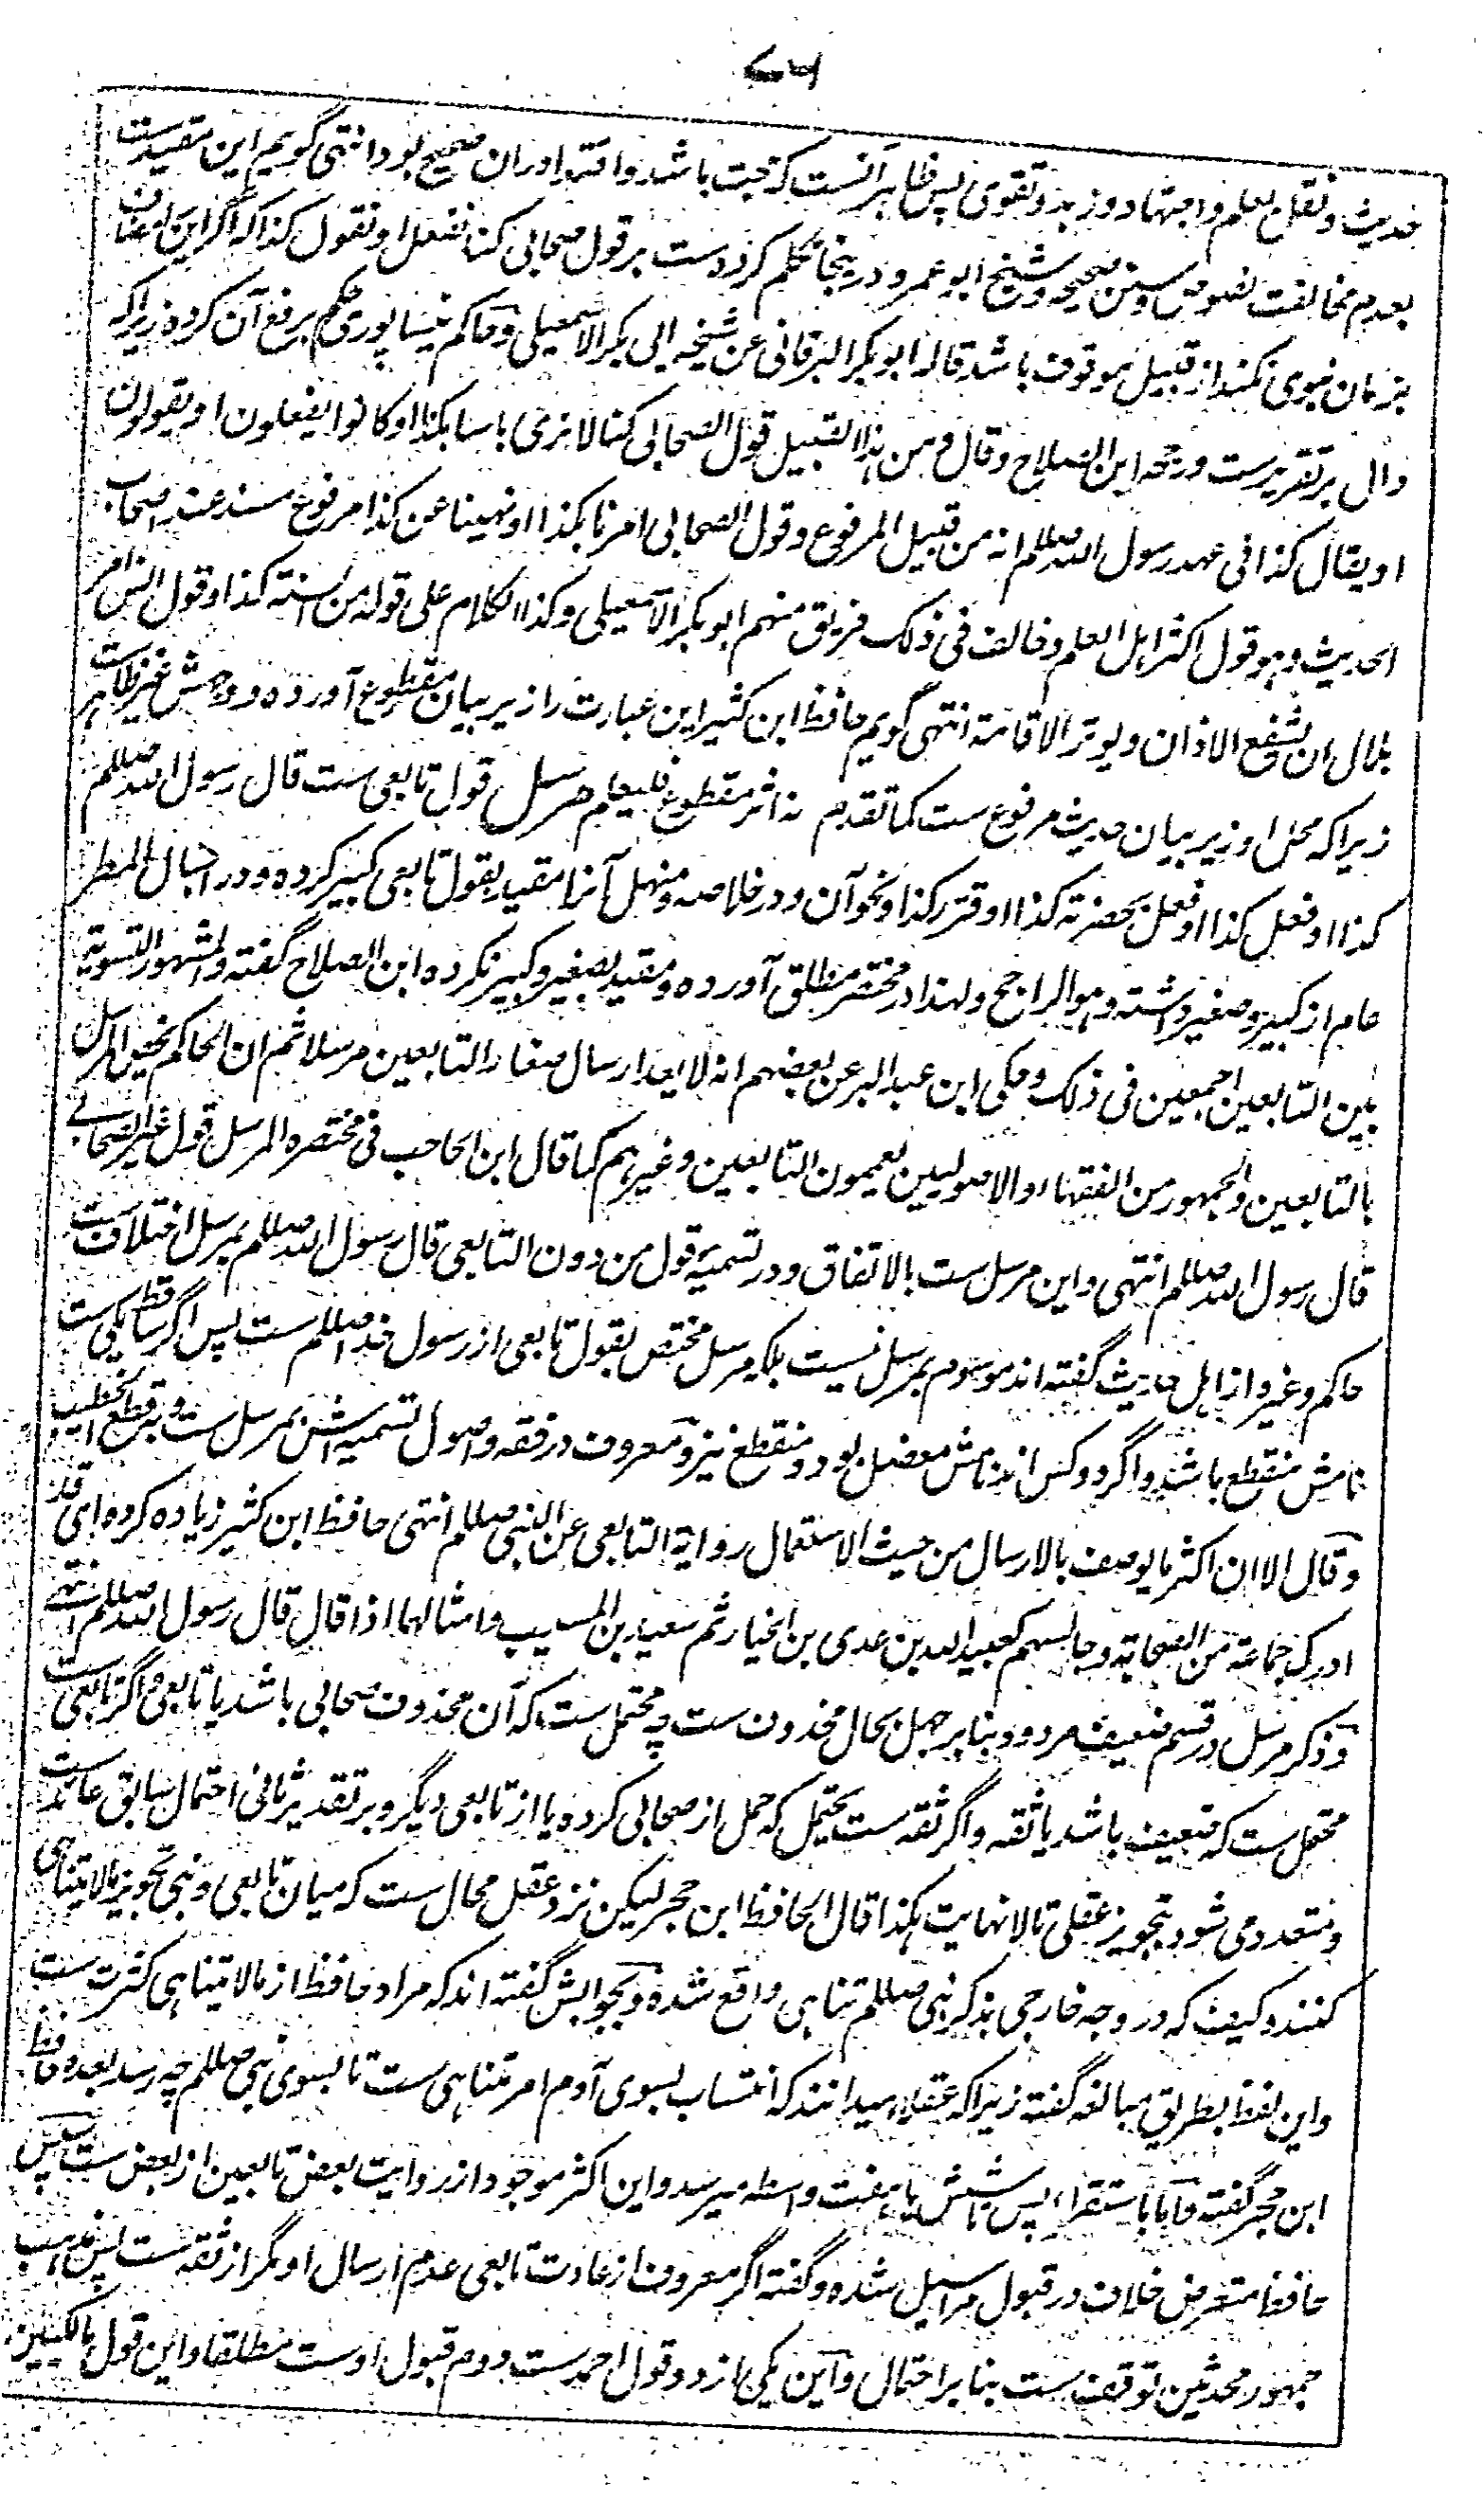 ۷۶
حدیث و تضلع بعلم و اجتهاد و زهد و تقوی پس ظاهر آنست که حجت باشد و اقتدا در ان صحیح بود انتهی گویم این مقیدست
بعدم مخالفت نصوص و سنن صحیحه و شیخ ابو عمرو درینجا تکلم کرده ست بر قول صحابی کنا نفعل او نقول کذا که اگر این را مضاف
بزمان نبوی نکند از قبیل موقوف باشد قاله ابو بکر البرقانی عن شیخه ابی بکر الاسمعیلی و حاکم نیساپوری حکم برفع آن کرده زیرا که
دال بر تقریرست و رجحه ابن الصلاح و قال و من هذا القبیل قول الصحابی کنا لا نری باسا بکذا او کانوا یفعلون او یقولون
او یقال کذا فی عهد رسول الله صللم انه من قبیل المرفوع و قول الصحابی امرنا بکذا او نهینا عن کذا مرفوع مسند عند اصحاب
الحدیث و هو قول اکثر اهل العلم و خالف فی ذلک فریق منهم ابو بکر الاسمعیلی و کذا الکلام علی قوله من السنة کذا و قول انس امر
بلال ان یشفع الاذان و یوتر الاقامة انتهی گویم حافظ ابن کثیر این عبارت را زیر بیان مقطوع آورده و وجهش غیر ظاهرست
زیرا که محل او زیر بیان حدیث مرفوع ست کما تقدم نه اثر مقطوع فلیعلم مرسل قول تابعی ست قال رسول الله صللم
کذا او فعل کذا او فعل بحضرته کذا او قرر کذا و نحو آن و در خلاصه و منهل آنرا مقید بقول تابعی کبیر کرده و در اسبال المطر
عام از کبیر و صغیر داشته و هو الراجح و لهذا در مختصر مطلق آورده و مقید بصغیر و کبیر نکرده ابن الصلاح گفته و المشهور التسویة
بین التابعین اجمعین فی ذلک و حکی ابن عبد البر عن بعضهم انه لا یعد ارسال صغار التابعین مرسلا ثم ان الحاکم یخص المرسل
بالتابعین و الجمهور من الفقهاء و الاصولیین یعممون التابعین و غیرهم کما قال ابن الحاجب فی مختصره المرسل قول غیر الصحابے
قال رسول الله صللم انتهی و این مرسل ست بالاتفاق و در تسمیۀ قول من دون التابعی قال رسول الله صللم بمرسل اختلاف ست
حاکم و غیر او از اهل حدیث گفته اند موسوم بمرسل نیست بلکه مرسل مختص بقول تابعی از رسول خدا صللم ست پس اگر ساقط یکی ست
نامش منقطع باشد و اگر دو کس اند نامش معضل بود و منقطع نیز و معروف در فقه و اصول تسمیه اش بمرسل ست و به قطع الخطیب
و قال الا ان اکثر ما یوصف بالارسال من حیث الاستعمال روایة التابعی عن النبی صللم انتهی حافظ ابن کثیر زیاده کرده ای قد
ادرک جماعة من الصحابة و جالسهم کعبید الله بن عدی بن الخیار ثم سعید بن المسیب و امثالهما اذا قال قال رسول الله صللم انتهے
و ذکر مرسل در قسم ضعیف مردود بنا بر جهل بحال محذوف ست چه محتمل ست که آن محذوف صحابی باشد یا تابعی و اگر تابعی ست
محتمل ست که ضعیف باشد یا ثقه و اگر ثقه ست یحتمل که حمل از صحابی کرده یا از تابعی دیگر و بر تقدیر ثانی احتمال سابق عائدست
و متعدد می شود بتجویز عقلی تا لا نهایت هکذا قال الحافظ ابن حجر لیکن نزد عقل محال ست که میان تابعی و نبی تجویز ما لا یتناهی
کنند و کیف که در وجه خارجی بذکر نبی صللم تناهی واقع شده و بجوابش گفته اند که مراد حافظ از ما لا یتناهی کثرت ست
و این لفظ بطریق مبالغه گفته زیرا که عقلا میدانند که انتساب بسوی آدم امر متناهی ست تا بسوی نبی صللم چه رسد بعده حافظ
ابن حجر گفته و اما باستقراء پس تا شش یا هفت واسطه میرسد و این اکثر موجود از روایت بعض تابعین از بعض ست سپس
حافظ متعرض خلاف در قبول مراسیل شده و گفته اگر معروف از عادت تابعی عدم ارسال او مگر از ثقه ست پس مذهب
جمهور محدثین توقف ست بنا بر احتمال و این یکی از دو قول احمدست دوم قبول اوست مطلقا و این قول مالکیین